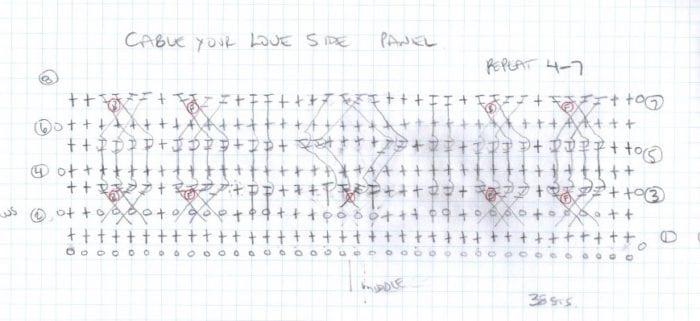 CABLE YOUR LOVE SIDE PANEL
REPEAT 4-7
8
7
6
5
4
3
WS
1
MIDDLE
38 sts.